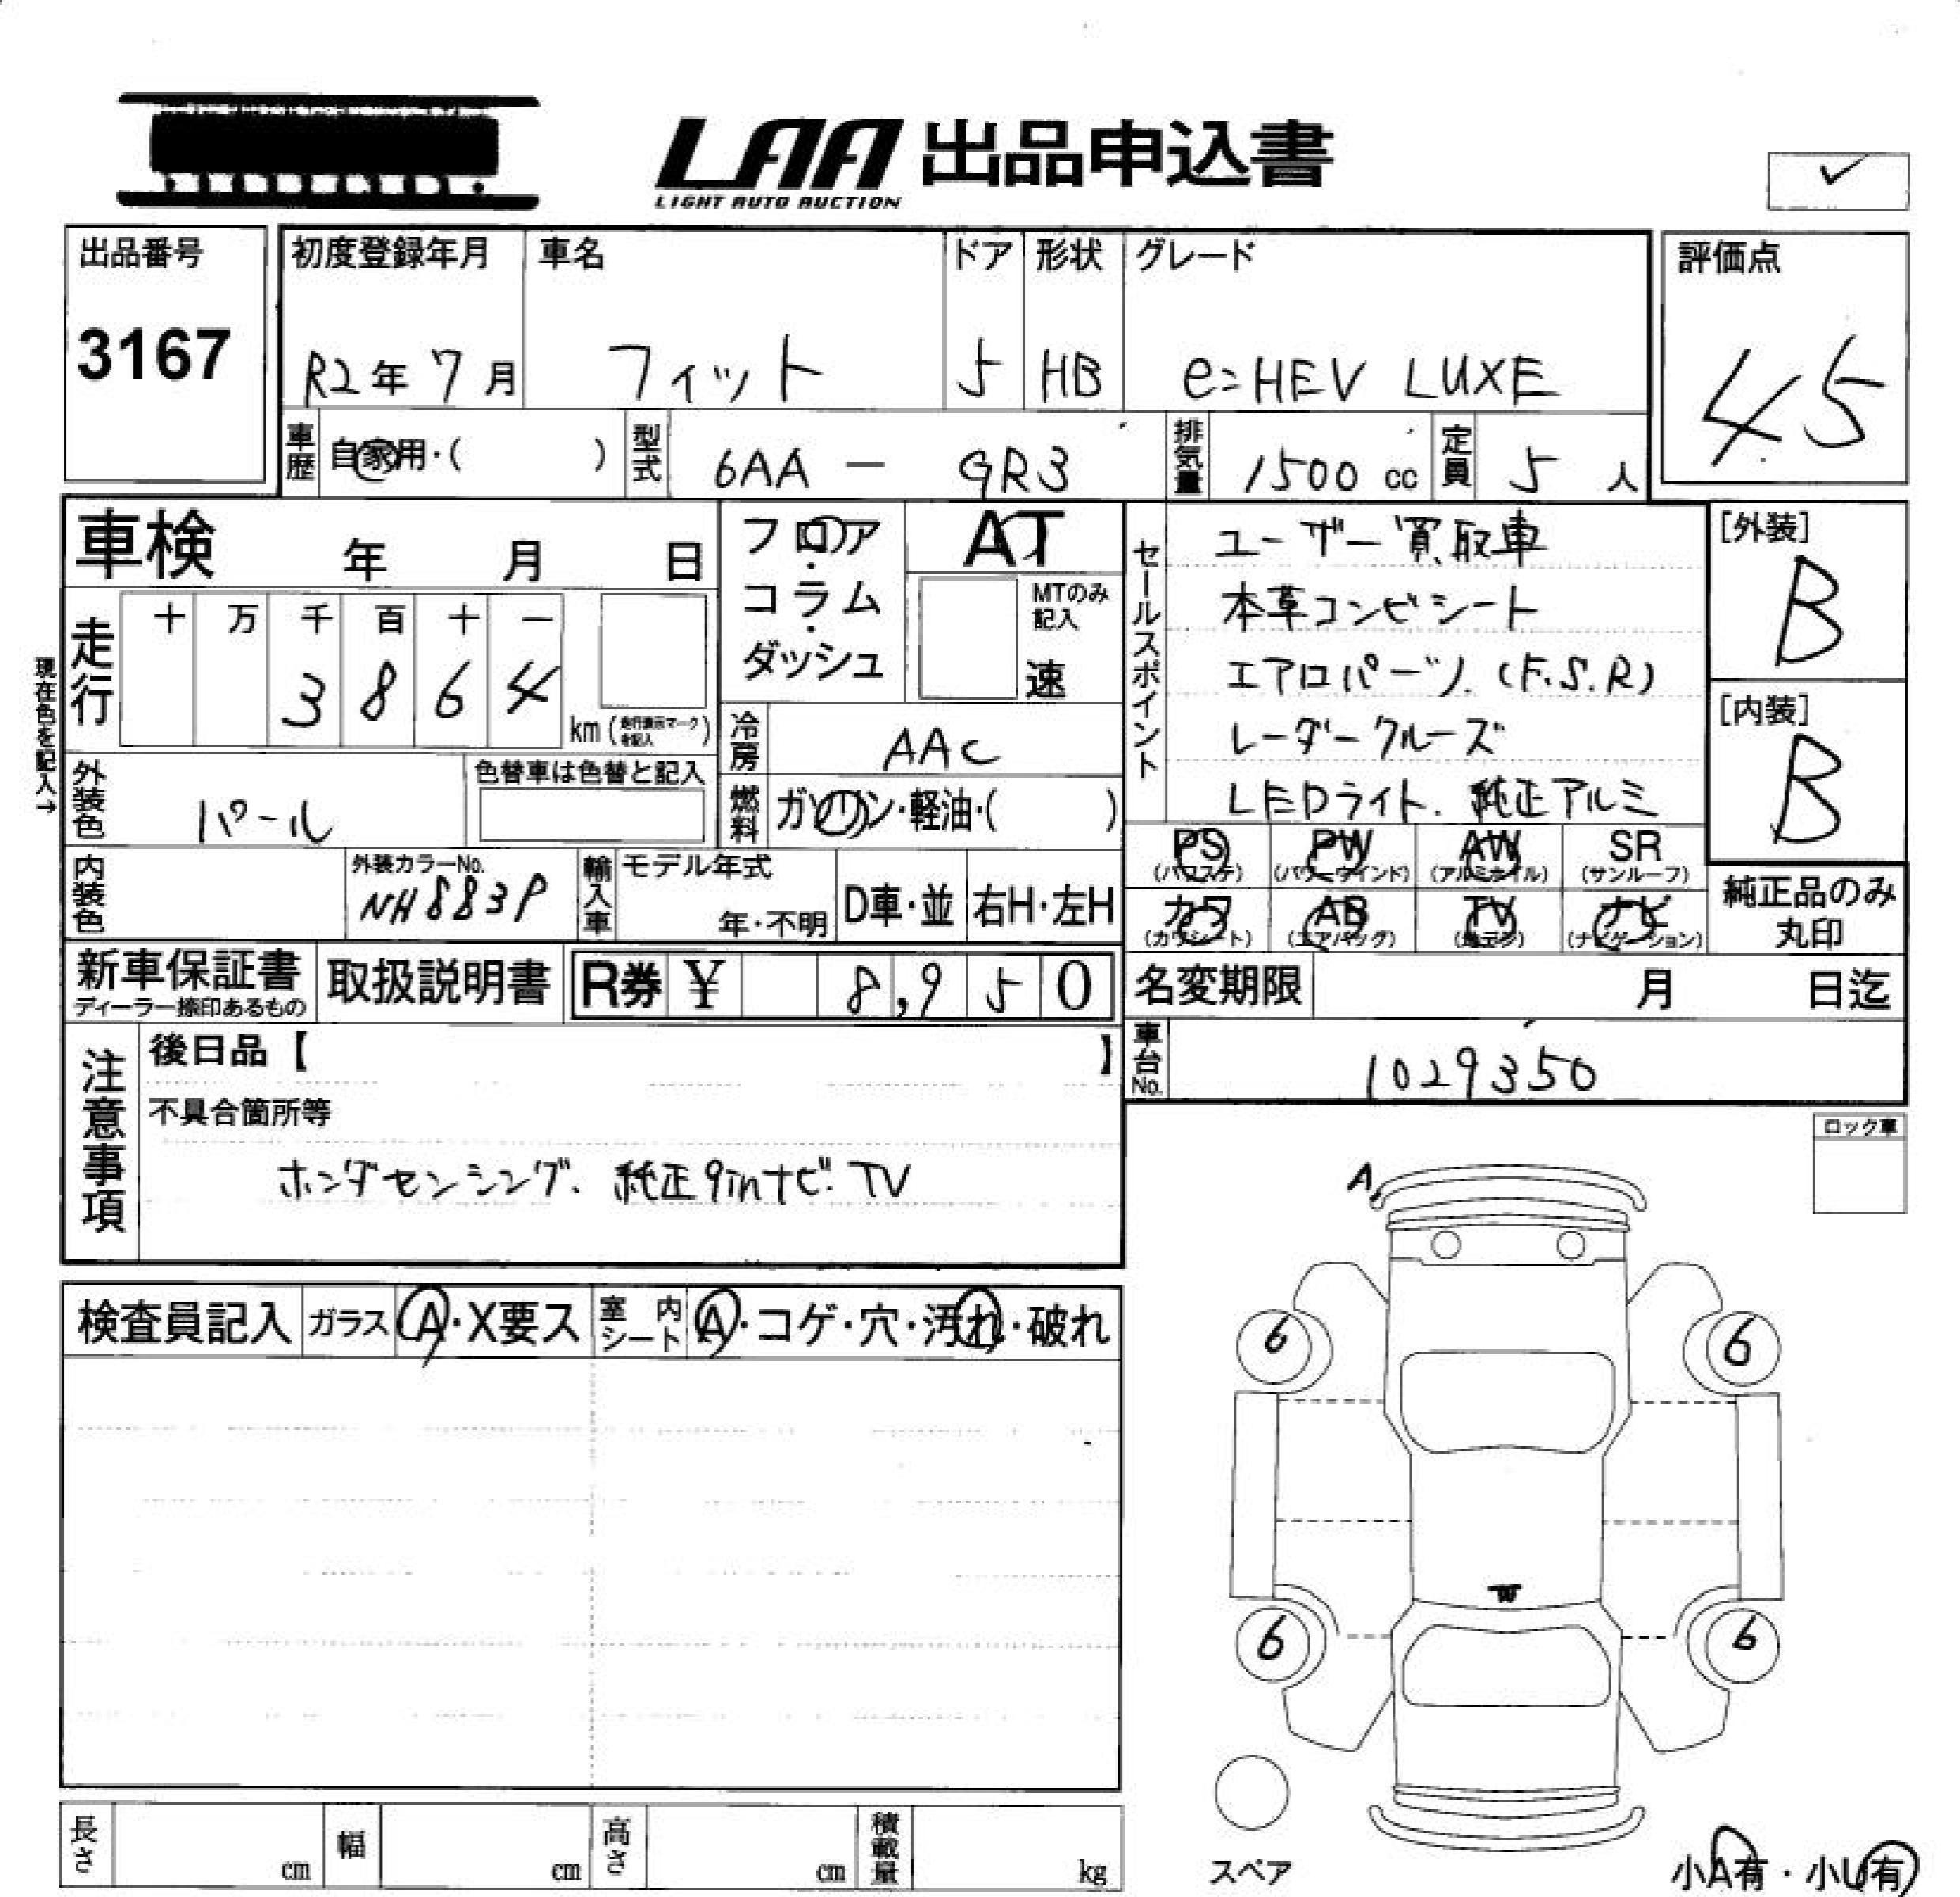 LAA 出品申込書
LIGHT AUTO AUCTION
出品番号
3167
初度登録年月
R2年7月
車名
フィット
ドア
5
形状
HB
グレード
e:HEV LUXE
評価点
4.5
車歴
自家用・( )
型式
6AA - GR3
排気量
1500 cc
定員
5 人
車検 年 月 日
フロア・コラム・ダッシュ
AT
MTのみ記入
速
セールスポイント
ユーザー買取車
本革コンビシート
エアロパーツ.(F.S.R)
レーダークルーズ
LEDライト. 純正アルミ
[外装]
B
[内装]
B
現在色を記入→
走行
十 万 千 百 十 一
3 8 6 4
km(走行表示マークを記入)
冷房
AAC
外装色
パール
色替車は色替と記入
燃料
ガソリン・軽油・( )
PS
(パワステ)
PW
(パワーウインド)
AW
(アルミホイル)
SR
(サンルーフ)
カワ
(カワシート)
AB
(エアバッグ)
TV
(地デジ)
ナビ
(ナビゲーション)
純正品のみ
丸印
内装色
外装カラーNo.
NH883P
輸入車
モデル年式
年・不明
D車・並
右H・左H
新車保証書
ディーラー捺印あるもの
取扱説明書
R券 ¥ 8,950
名変期限 月 日迄
車台No.
1029350
注意事項
後日品【 】
不具合箇所等
ホンダセンシング. 純正9inナビ. TV
ロック車
A
6
6
6
6
検査員記入
ガラス
A・X要ス
室内シート
A・コゲ・穴・汚れ・破れ
長さ cm
幅 cm
高さ cm
積載量 kg
スペア
小A有・小U有